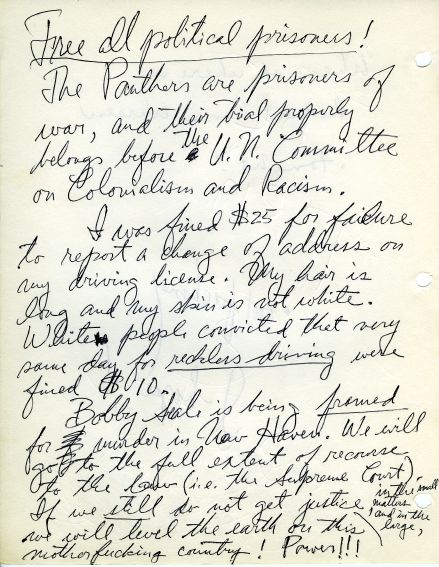 Free all political prisoners!
The Panthers are prisoners of
war, and their trial properly
belongs before the U.N. Committee
on Colonialism and Racism.
I was fined $25 for failure
to report a change of address on
my driving license. My hair is
long and my skin is not white.
White people convicted that very
same day for reckless driving were
fined $10.
Bobby Seale is being framed
for murder in New Haven. We will
go to the full extent of recourse
to the law (i.e. the Supreme Court).
If we still do not get justice in the small
matters and in the
large,
we will level the earth on this
motherfucking country! Power!!!